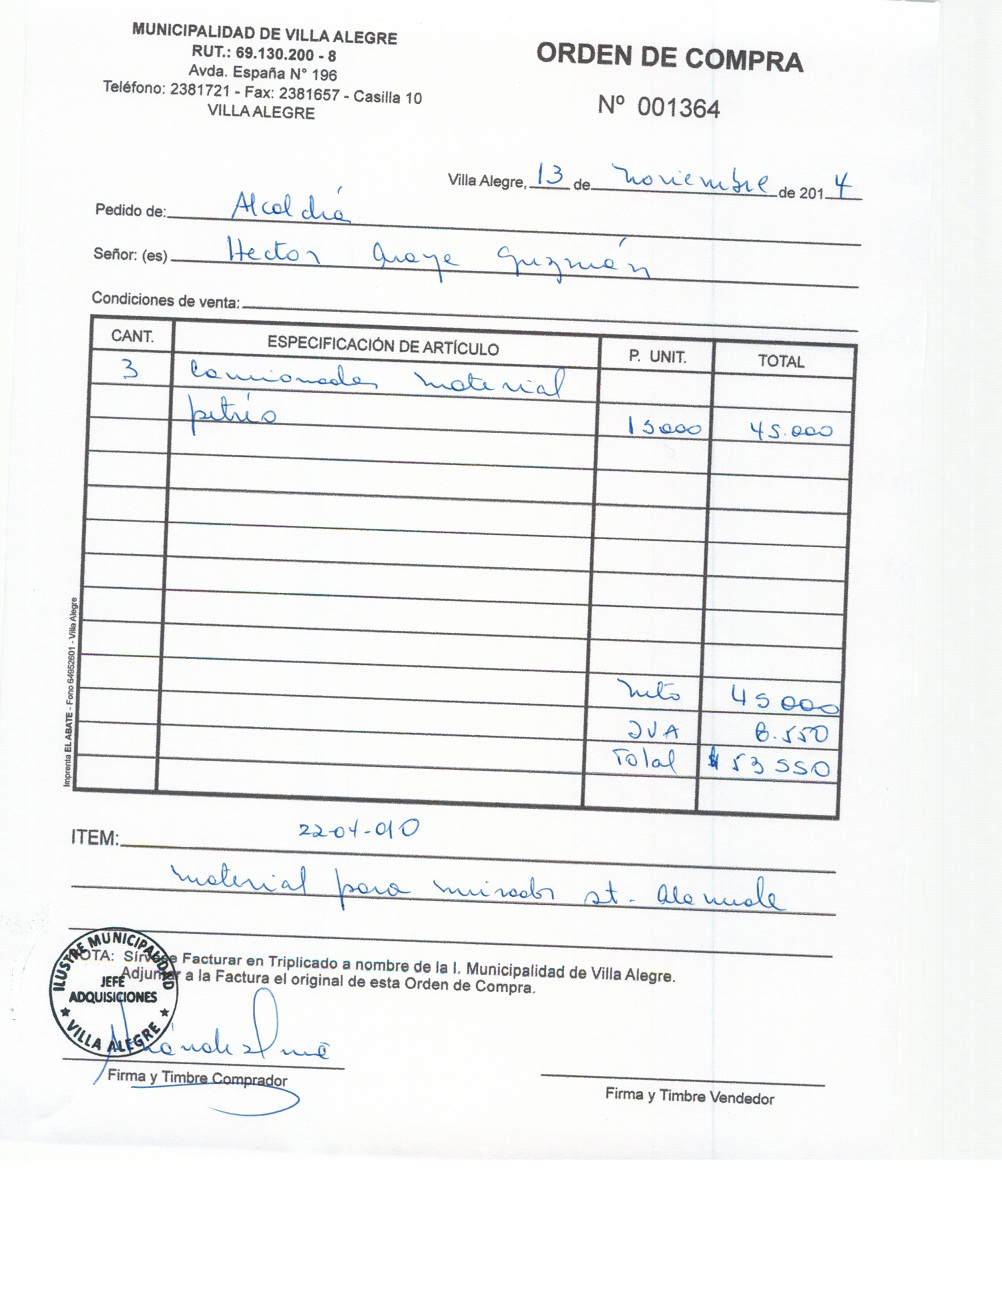 MUNICIPALIDAD DE VILLA ALEGRE
RUT.: 69.130.200 - 8
Avda. España N° 196
Teléfono: 2381721 - Fax: 2381657 - Casilla 10
VILLA ALEGRE
ORDEN DE COMPRA
Nº 001364
Villa Alegre, 13 de noviembre de 2014
Pedido de: Alcaldía
Señor: (es) Hector Guzmán
Condiciones de venta:
CANT. ESPECIFICACIÓN DE ARTÍCULO P. UNIT. TOTAL
3 Camionadas material
petrio 15000 45.000
Neto 45000
IVA 8.550
Total $ 53550
Imprenta EL ABATE - Fono 64952601 - Villa Alegre
ITEM: 22-04-010
material para mirador
NOTA: Sírvase Facturar en Triplicado a nombre de la I. Municipalidad de Villa Alegre.
Adjuntar a la Factura el original de esta Orden de Compra.
ILUSTRE MUNICIPALIDAD
JEFE
ADQUISICIONES
VILLA ALEGRE
Firma y Timbre Comprador
Firma y Timbre Vendedor